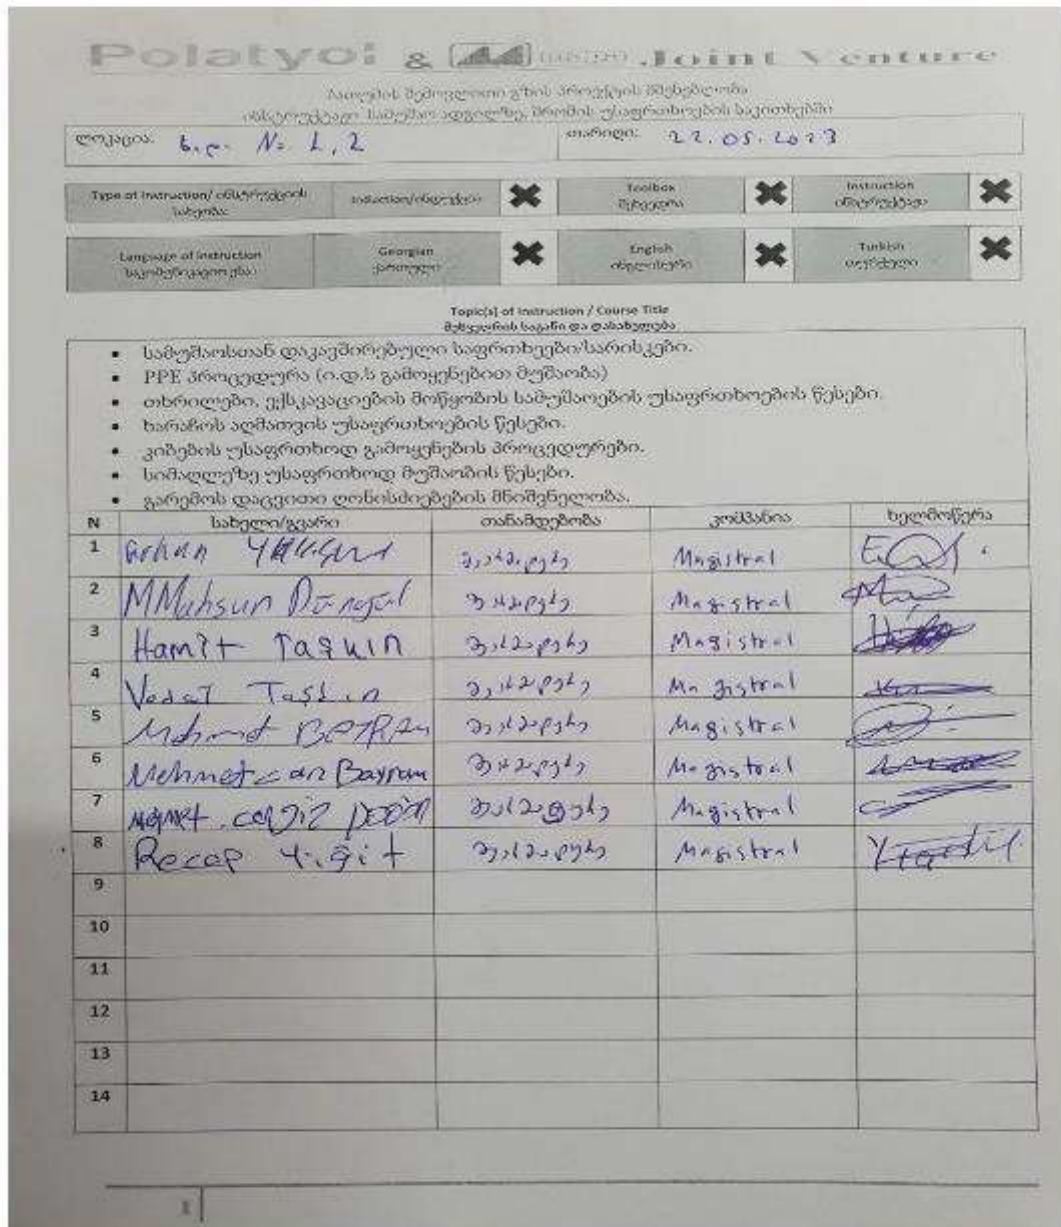 Polatyol & Joint Venture
ბათუმის შემოვლითი გზის პროექტის მშენებლობა
ინსტრუქტაჟი სამუშაო ადგილზე, შრომის უსაფრთხოების საკითხებში
ლოკაცია: ხ.დ. № 1,2 თარიღი: 22.05.2023
Type of Instruction/ ინსტრუქციის სახეობა: Induction/ინდუქცია ✖ Toolbox შეხვედრა ✖ Instruction ინსტრუქტაჟი ✖
Language of Instruction საკომუნიკაციო ენა: Georgian ქართული ✖ English ინგლისური ✖ Turkish თურქული ✖
Topic(s) of Instruction / Course Title
შეხვედრის საგანი და დასახელება
• სამუშაოსთან დაკავშირებული საფრთხეები/სარისკები.
• PPE პროცედურა (ი.დ.ს გამოყენებით მუშაობა)
• თხრილები, ექსკავაციების მოწყობის სამუშაოების უსაფრთხოების წესები.
• ხარაჩოს აღმართვის უსაფრთხოების წესები.
• კიბეების უსაფრთხოდ გამოყენების პროცედურები.
• სიმაღლეზე უსაფრთხოდ მუშაობის წესები.
• გარემოს დაცვითი ღონისძიებების მნიშვნელობა.
N სახელი/გვარი თანამდებობა კომპანია ხელმოწერა
1 Magistral
2 MMahsun Magistral
3 Hamit Taşkın Magistral
4 Vedat Taşkın Magistral
5 Mehmet Magistral
6 Mehmet can Bayram Magistral
7 Magistral
8 Recep Yiğit Magistral
9
10
11
12
13
14
1